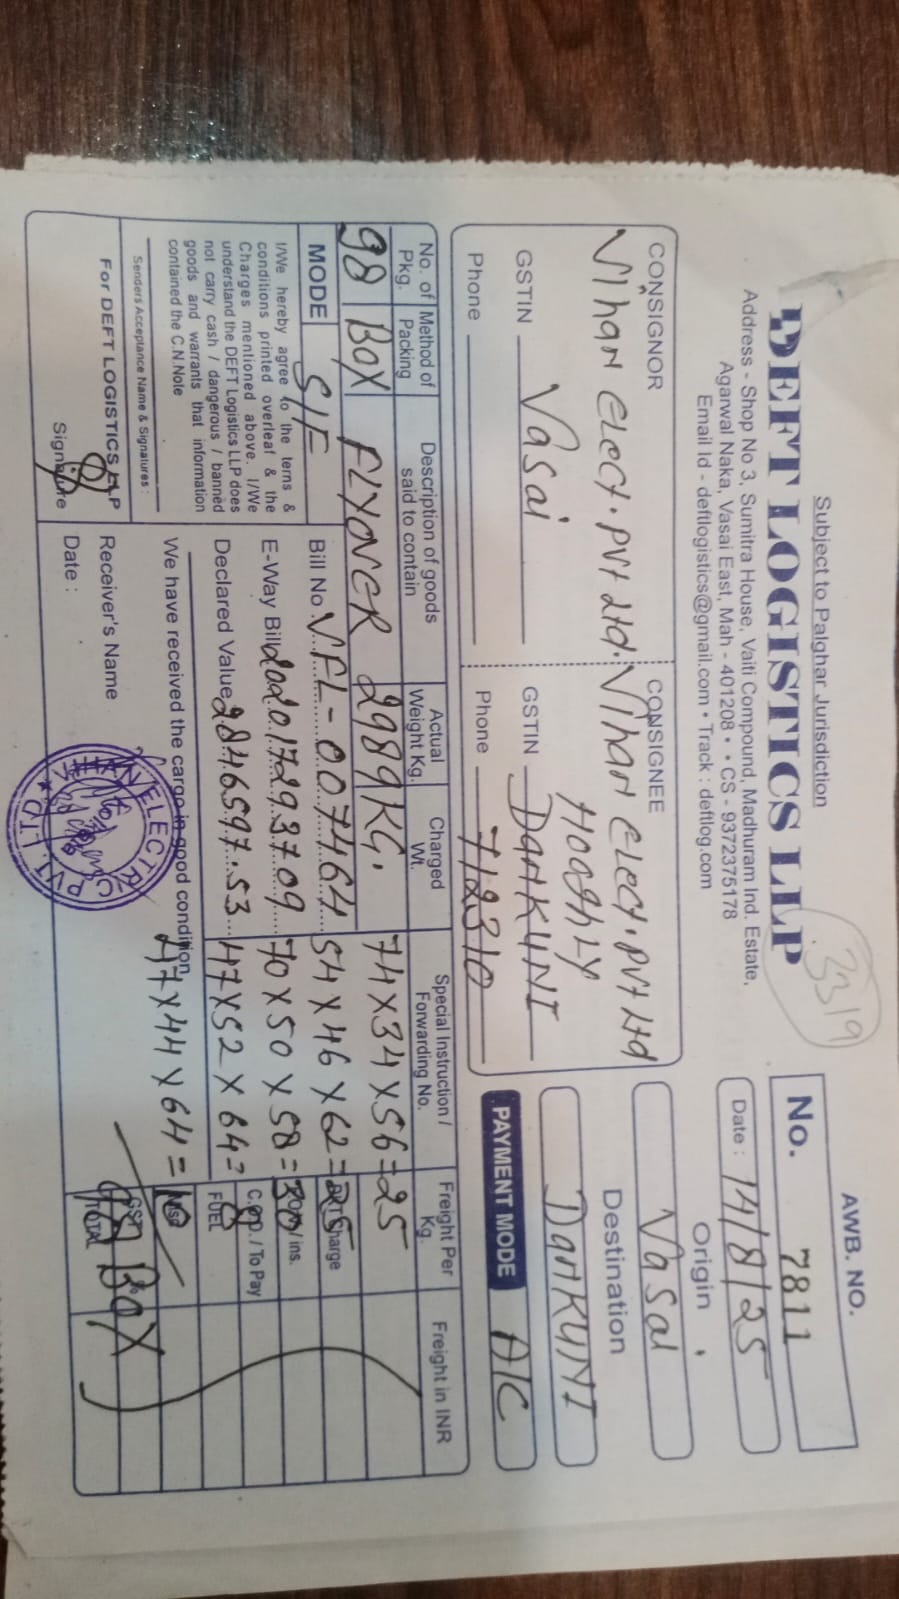 Subject to Palghar Jurisdiction
DEFT LOGISTICS LLP
3319
Address - Shop No 3, Sumitra House, Vaiti Compound, Madhuram Ind. Estate,
Agarwal Naka, Vasai East, Mah - 401208 • • CS - 9372375178
Email Id - deftlogistics@gmail.com • Track : deftlog.com
AWB. NO.
No. 7811
Date : 14/8/25
Origin
Vasai
Destination
DANKUNI
PAYMENT MODE A/C
CONSIGNOR
Vihan Elect. Pvt Ltd.
Vasai
GSTIN
Phone
CONSIGNEE
Vihan Elect. Pvt Ltd
HOOGHLY
GSTIN DANKUNI
Phone 712310
No. of Pkg. Method of Packing Description of goods said to contain Actual Weight Kg. Charged Wt. Special Instruction / Forwarding No. Freight Per Kg. Freight in INR
98 BOX FLYONER 2989KG. 74 x 34 x 56 = 25
MODE S/F
Bill No. VFL-007464 54 x 46 x 62 = 25
E-Way Bill 202017293709 70 x 50 x 58 = 30
C.O.D. / To Pay
Declared Value 2846597.53 47 x 52 x 64 = 8
FUEL
47 x 44 x 64 = 10
TOTAL
98 BOX
I/We hereby agree to the terns &
conditions printed overleaf & the
Charges mentioned above. I/We
understand the DEFT Logistics LLP does
not carry cash / dangerous / banned
goods and warrants that information
contained the C.N.Note
Senders Acceptance Name & Signatures :
For DEFT LOGISTICS LLP
Signature
We have received the cargo in good condition
Receiver's Name
Date :
ELECTRIC PVT. LTD.